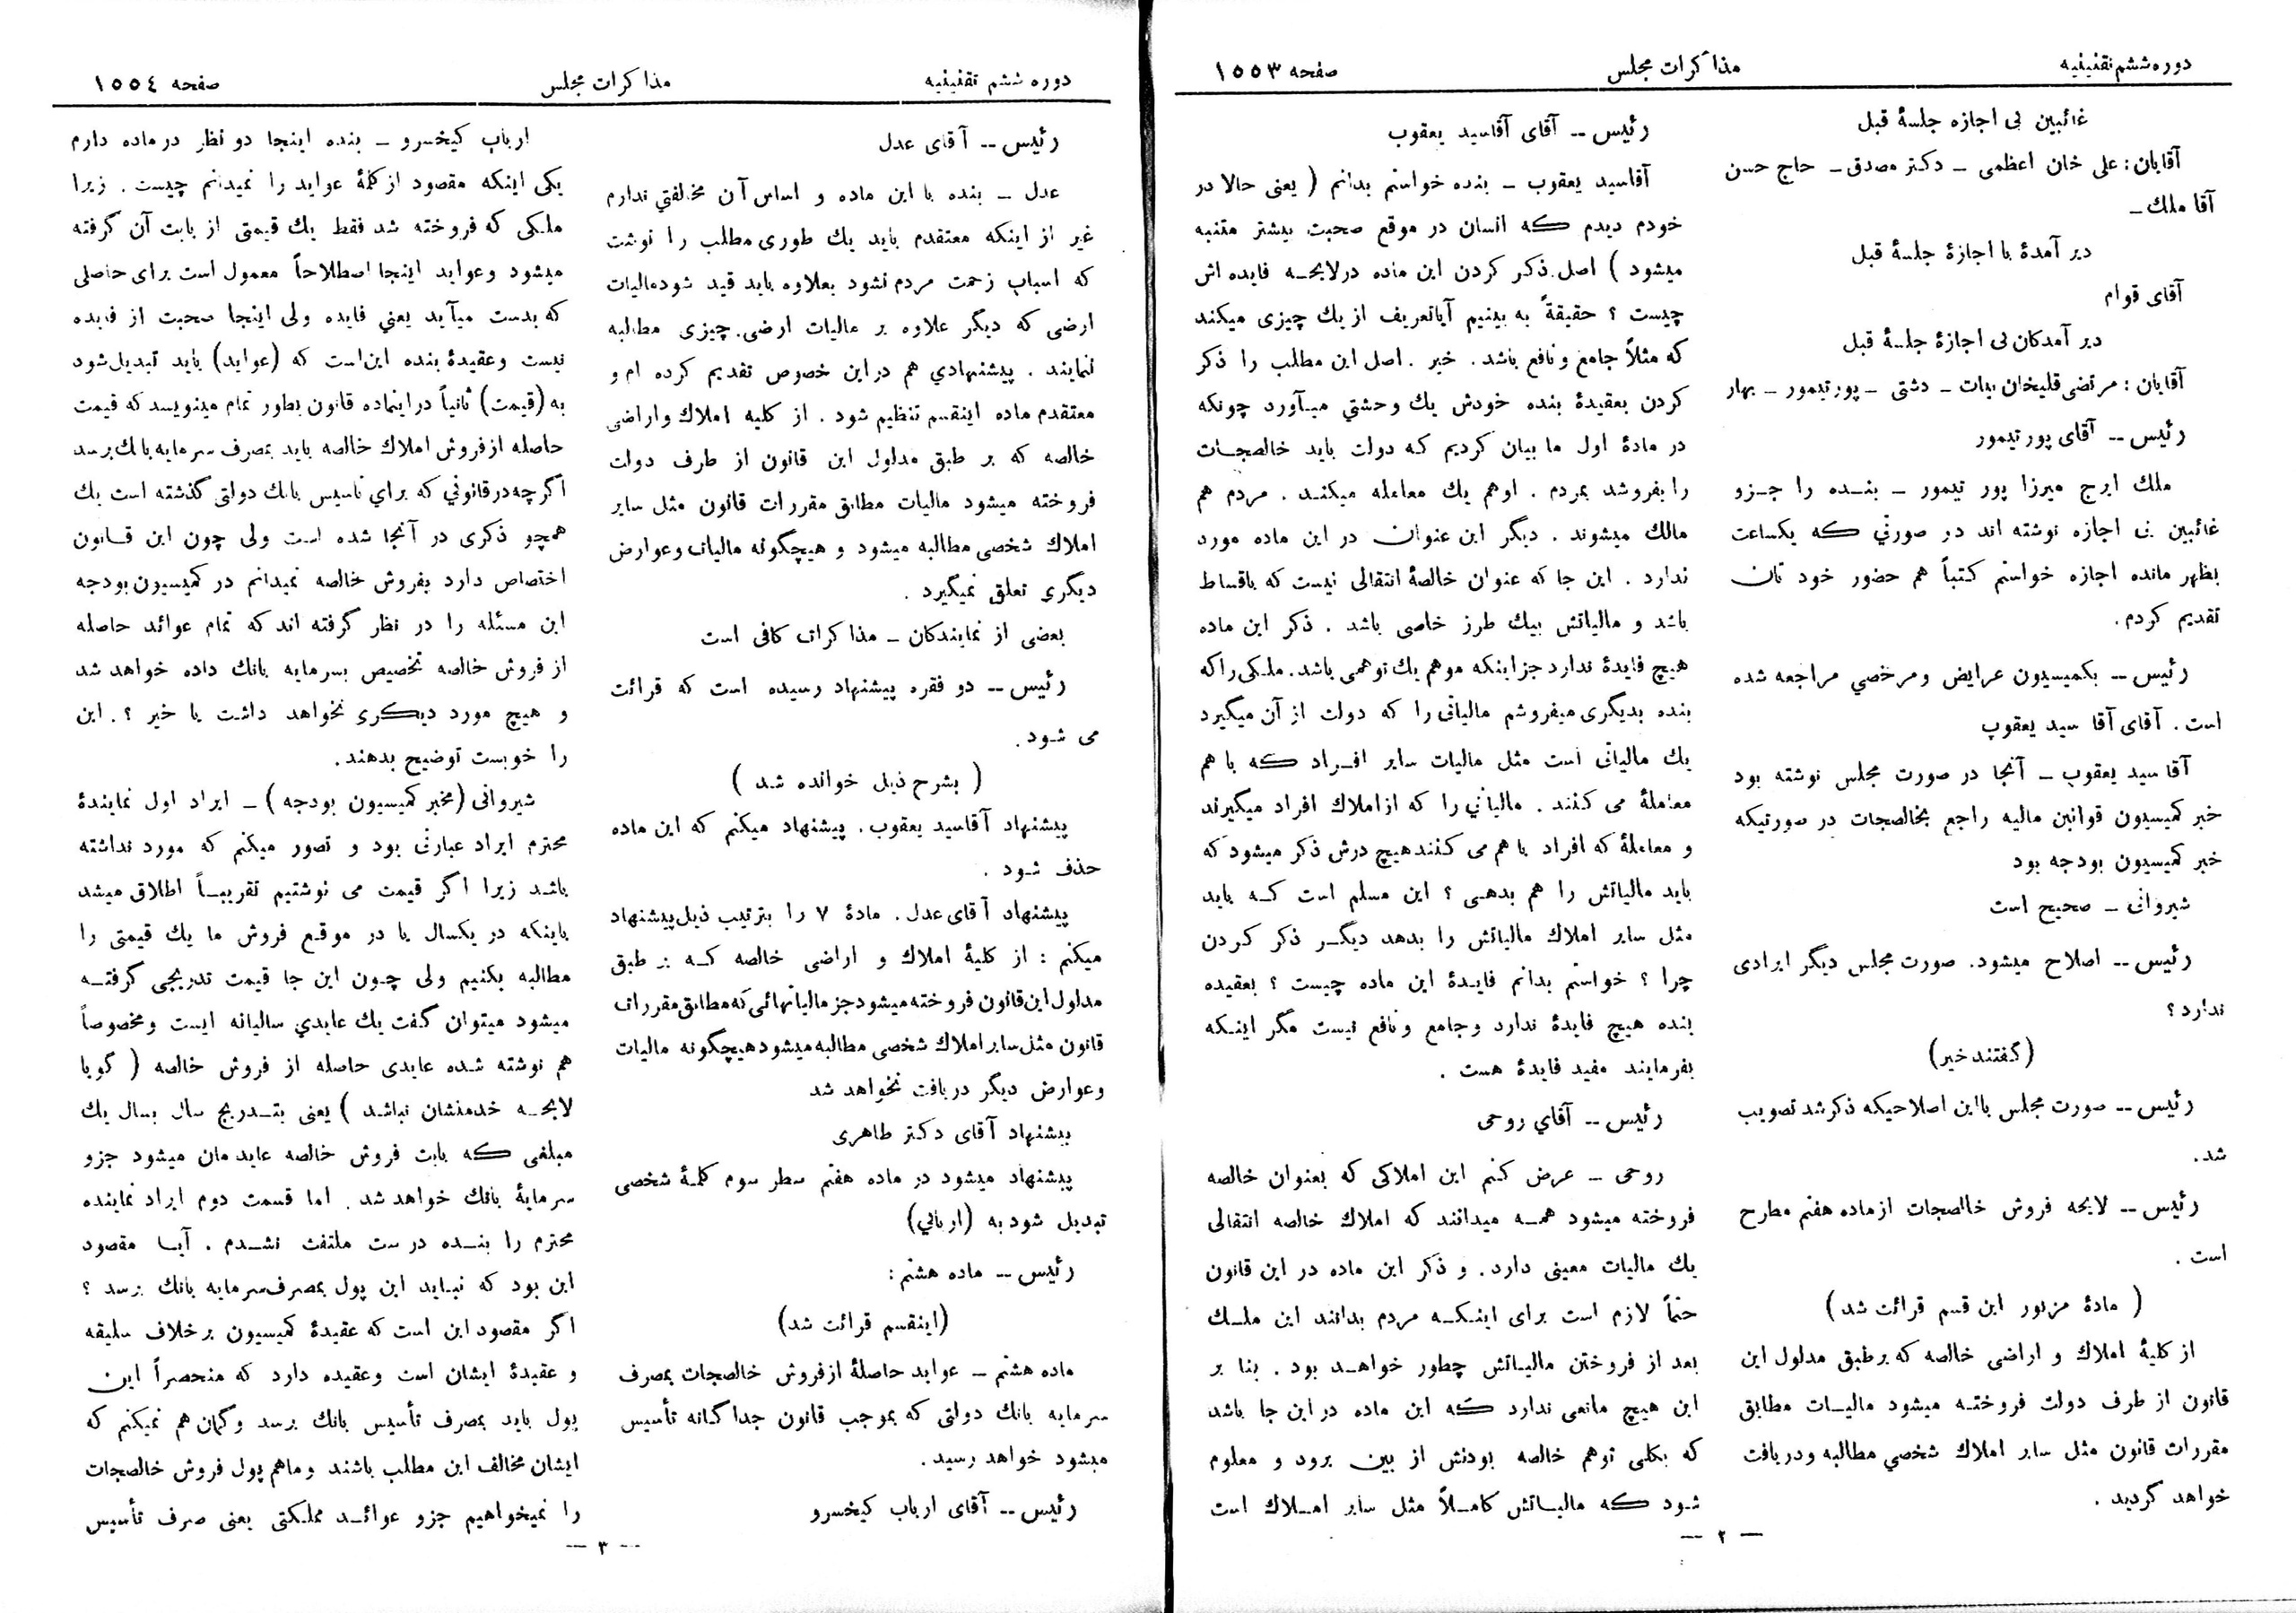 دوره ششم تقنینیه
مذاکرات مجلس
صفحه ۱۵۵۳
غائبین بی اجازه جلسهٔ قبل
آقایان: علی خان اعظمی ــ دکتر مصدق ــ حاج حسن
آقا ملك ــ
دیر آمدهٔ با اجازهٔ جلسهٔ قبل
آقای قوام
دیر آمدکان بی اجازهٔ جلسهٔ قبل
آقایان: مرتضی قلیخان بیات ــ دشتی ــ پورتیمور ــ بهار
رئیس ــ آقای پورتیمور
ملك ایرج میرزا پور تیمور ــ بنده را جزو
غائبین بی اجازه نوشته اند در صورتي که یکساعت
بظهر مانده اجازه خواستم کتباً هم حضور خود تان
تقدیم کردم.
رئیس ــ بکمیسیون عرایض ومرخصي مراجعه شده
است. آقای آقا سید یعقوب
آقا سید یعقوب ــ آنجا در صورت مجلس نوشته بود
خبر کمیسیون قوانین مالیه راجع بخالصجات در صورتیکه
خبر کمیسیون بودجه بود
شیروانی ــ صحیح است
رئیس ــ اصلاح میشود. صورت مجلس دیگر ایرادی
ندارد؟
(گفتند خیر)
رئیس ــ صورت مجلس بااین اصلاحیکه ذکر شد تصویب
شد.
رئیس ــ لایحه فروش خالصجات از ماده هفتم مطرح
است.
( مادهٔ مزبور این قسم قرائت شد)
از کلیهٔ املاك و اراضی خالصه که بر طبق مدلول این
قانون از طرف دولت فروخته میشود مالیات مطابق
مقررات قانون مثل سایر املاك شخصي مطالبه ودریافت
خواهد گردید.
رئیس ــ آقای آقاسید یعقوب
آقاسید یعقوب ــ بنده خواستم بدانم ( یعنی حالا در
خودم دیدم که انسان در موقع صحبت بیشتر متنبه
میشود ) اصل ذکر کردن این ماده در لایحه فایده اش
چیست؟ حقیقةً به بینیم آیا تعریف از یك چیزی میکند
که مثلاً جامع و نافع باشد. خیر. اصل این مطلب را ذکر
کردن بعقیدهٔ بنده خودش یك وحشتي میآورد چونکه
در مادهٔ اول ما بیان کردیم که دولت باید خالصجات
را بفروشد بمردم. اوهم یك معامله میکند. مردم هم
مالك میشوند. دیگر این عنوان در این ماده مورد
ندارد. این جا که عنوان خالصهٔ انتقالی نیست که باقساط
باشد و مالیاتش بیك طرز خاصی باشد. ذکر این ماده
هیچ فایدهٔ ندارد جز اینکه موهم یك توهمی باشد. ملکی را که
بنده بدیگری میفروشم مالیاتی را که دولت از آن میگیرد
یك مالیاتی است مثل مالیات سایر افراد که با هم
معاملهٔ می کنند. مالیاتي را که از املاك افراد میگیرند
و معاملهٔ که افراد با هم می کنند هیچ درش ذکر میشود که
باید مالیاتش را هم بدهی؟ این مسلم است که باید
مثل سایر املاك مالیاتش را بدهد دیگر ذکر کردن
چرا؟ خواستم بدانم فایدهٔ این ماده چیست؟ بعقیده
بنده هیچ فایدهٔ ندارد وجامع ونافع نیست مگر اینکه
بفرمایند مفید فایدهٔ هست.
رئیس ــ آقاي روحی
روحی ــ عرض کنم این املاکی که بعنوان خالصه
فروخته میشود همه میدانند که املاك خالصه انتقالی
یك مالیات معینی دارد. و ذکر این ماده در این قانون
حتماً لازم است برای اینکه مردم بدانند این ملك
بعد از فروختن مالیاتش چطور خواهد بود. بنا بر
این هیچ مانعی ندارد که این ماده در این جا باشد
که بکلی توهم خالصه بودنش از بین برود و معلوم
شود که مالیاتش کاملاً مثل سایر املاك است
ــ ۲ ــ
دوره ششم تقنینیه
مذاکرات مجلس
صفحه ۱۵۵٤
رئیس ــ آقای عدل
عدل ــ بنده با این ماده و اساس آن مخالفتي ندارم
غیر از اینکه معتقدم باید یك طوری مطلب را نوشت
که اسباب زحمت مردم نشود بعلاوه باید قید شود مالیات
ارضی که دیگر علاوه بر مالیات ارضی. چیزی مطالبه
ننمایند. پیشنهادي هم در این خصوص تقدیم کرده ام و
معتقدم ماده اینقسم تنظیم شود. از کلیه املاك واراضی
خالصه که بر طبق مدلول این قانون از طرف دولت
فروخته میشود مالیات مطابق مقررات قانون مثل سایر
املاك شخصی مطالبه میشود و هیچگونه مالیات وعوارض
دیگری تعلق نمیگیرد.
بعضی از نمایندکان ــ مذاکرات کافی است
رئیس ــ دو فقره پیشنهاد رسیده است که قرائت
می شود.
( بشرح ذیل خوانده شد )
پیشنهاد آقاسید یعقوب. پیشنهاد میکنم که این ماده
حذف شود.
پیشنهاد آقای عدل. مادهٔ ۷ را بترتیب ذیل پیشنهاد
میکنم: از کلیهٔ املاك و اراضی خالصه که بر طبق
مدلول این قانون فروخته میشود جز مالیاتهائی که مطابق مقررات
قانون مثل سایر املاك شخصی مطالبه میشود هیچگونه مالیات
وعوارض دیگر دریافت نخواهد شد
پیشنهاد آقای دکتر طاهری
پیشنهاد میشود در ماده هفتم سطر سوم کلمهٔ شخصی
تبدیل شود به (اربابي)
رئیس ــ ماده هشتم:
(اینقسم قرائت شد)
ماده هشتم ــ عواید حاصلهٔ از فروش خالصجات بمصرف
سرمایه بانك دولتی که بموجب قانون جداگانه تأسیس
میشود خواهد رسید.
رئیس ــ آقای ارباب کیخسرو
ارباب کیخسرو ــ بنده اینجا دو نظر در ماده دارم
یکی اینکه مقصود از کلمهٔ عواید را نمیدانم چیست. زیرا
ملکی که فروخته شد فقط یك قیمتی از بابت آن گرفته
میشود وعواید اینجا اصطلاحاً معمول است برای حاصلی
که بدست میآید یعني فایده ولی اینجا صحبت از فایده
نیست وعقیدهٔ بنده این است که (عواید) باید تبدیل شود
به (قیمت) ثانیاً در اینماده قانون بطور تمام مینویسد که قیمت
حاصله از فروش املاك خالصه باید بمصرف سرمایه بانك برسد
اگرچه در قانوني که براي تاسیس بانك دولتی گذشته است یك
همچو ذکری در آنجا شده است ولی چون این قانون
اختصاص دارد بفروش خالصه نمیدانم در کمیسیون بودجه
این مسئله را در نظر گرفته اند که تمام عوائد حاصله
از فروش خالصه تخصیص بسرمایه بانك داده خواهد شد
و هیچ مورد دیگری نخواهد داشت یا خیر؟. این
را خوبست توضیح بدهند.
شیروانی (مخبر کمیسیون بودجه) ــ ایراد اول نمایندهٔ
محترم ایراد عبارتی بود و تصور میکنم که مورد نداشته
باشد زیرا اگر قیمت می نوشتیم تقریباً اطلاق میشد
باینکه در یکسال یا در موقع فروش ما یك قیمتی را
مطالبه بکنیم ولی چون این جا قیمت تدریجی گرفته
میشود میتوان گفت یك عایدي سالیانه ایست ومخصوصاً
هم نوشته شده عایدی حاصله از فروش خالصه ( گویا
لایحه خدمتشان نباشد ) یعنی بتدریج سال بسال یك
مبلغی که بابت فروش خالصه عاید مان میشود جزو
سرمایهٔ بانك خواهد شد. اما قسمت دوم ایراد نماینده
محترم را بنده درست ملتفت نشدم. آیا مقصود
این بود که نباید این پول بمصرف سرمایه بانك برسد؟
اگر مقصود این است که عقیدهٔ کمیسیون بر خلاف سلیقه
و عقیدهٔ ایشان است وعقیده دارد که منحصراً این
پول باید بمصرف تأسیس بانك برسد وگمان هم نمیکنم که
ایشان مخالف این مطلب باشند وماهم پول فروش خالصجات
را نمیخواهیم جزو عوائد مملکتی یعنی صرف تأسیس
ــ ۳ ــ